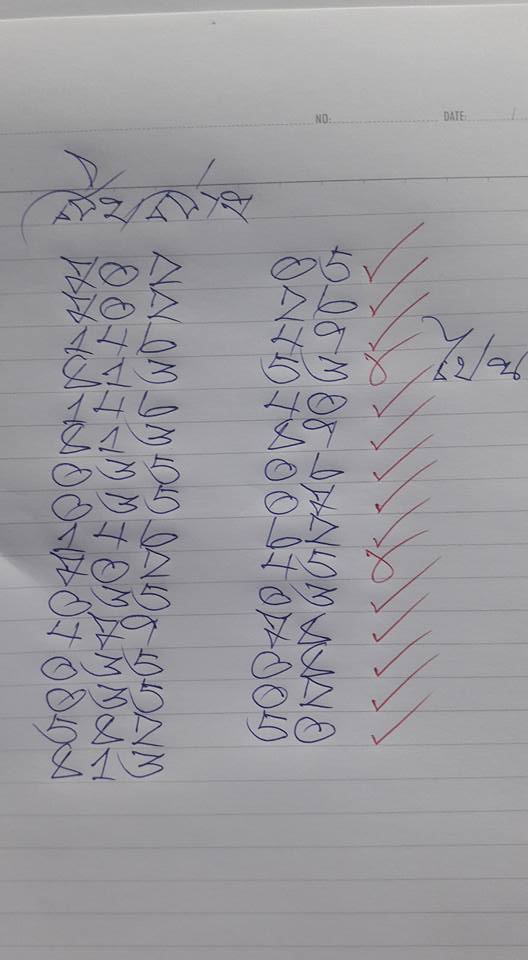 NO:
DATE: /
702 05
702 26
146 49
813 53
146 40
813 89
035 06
035 07
146 62
702 45
035 03
479 78
035 08
035 02
582 50
813